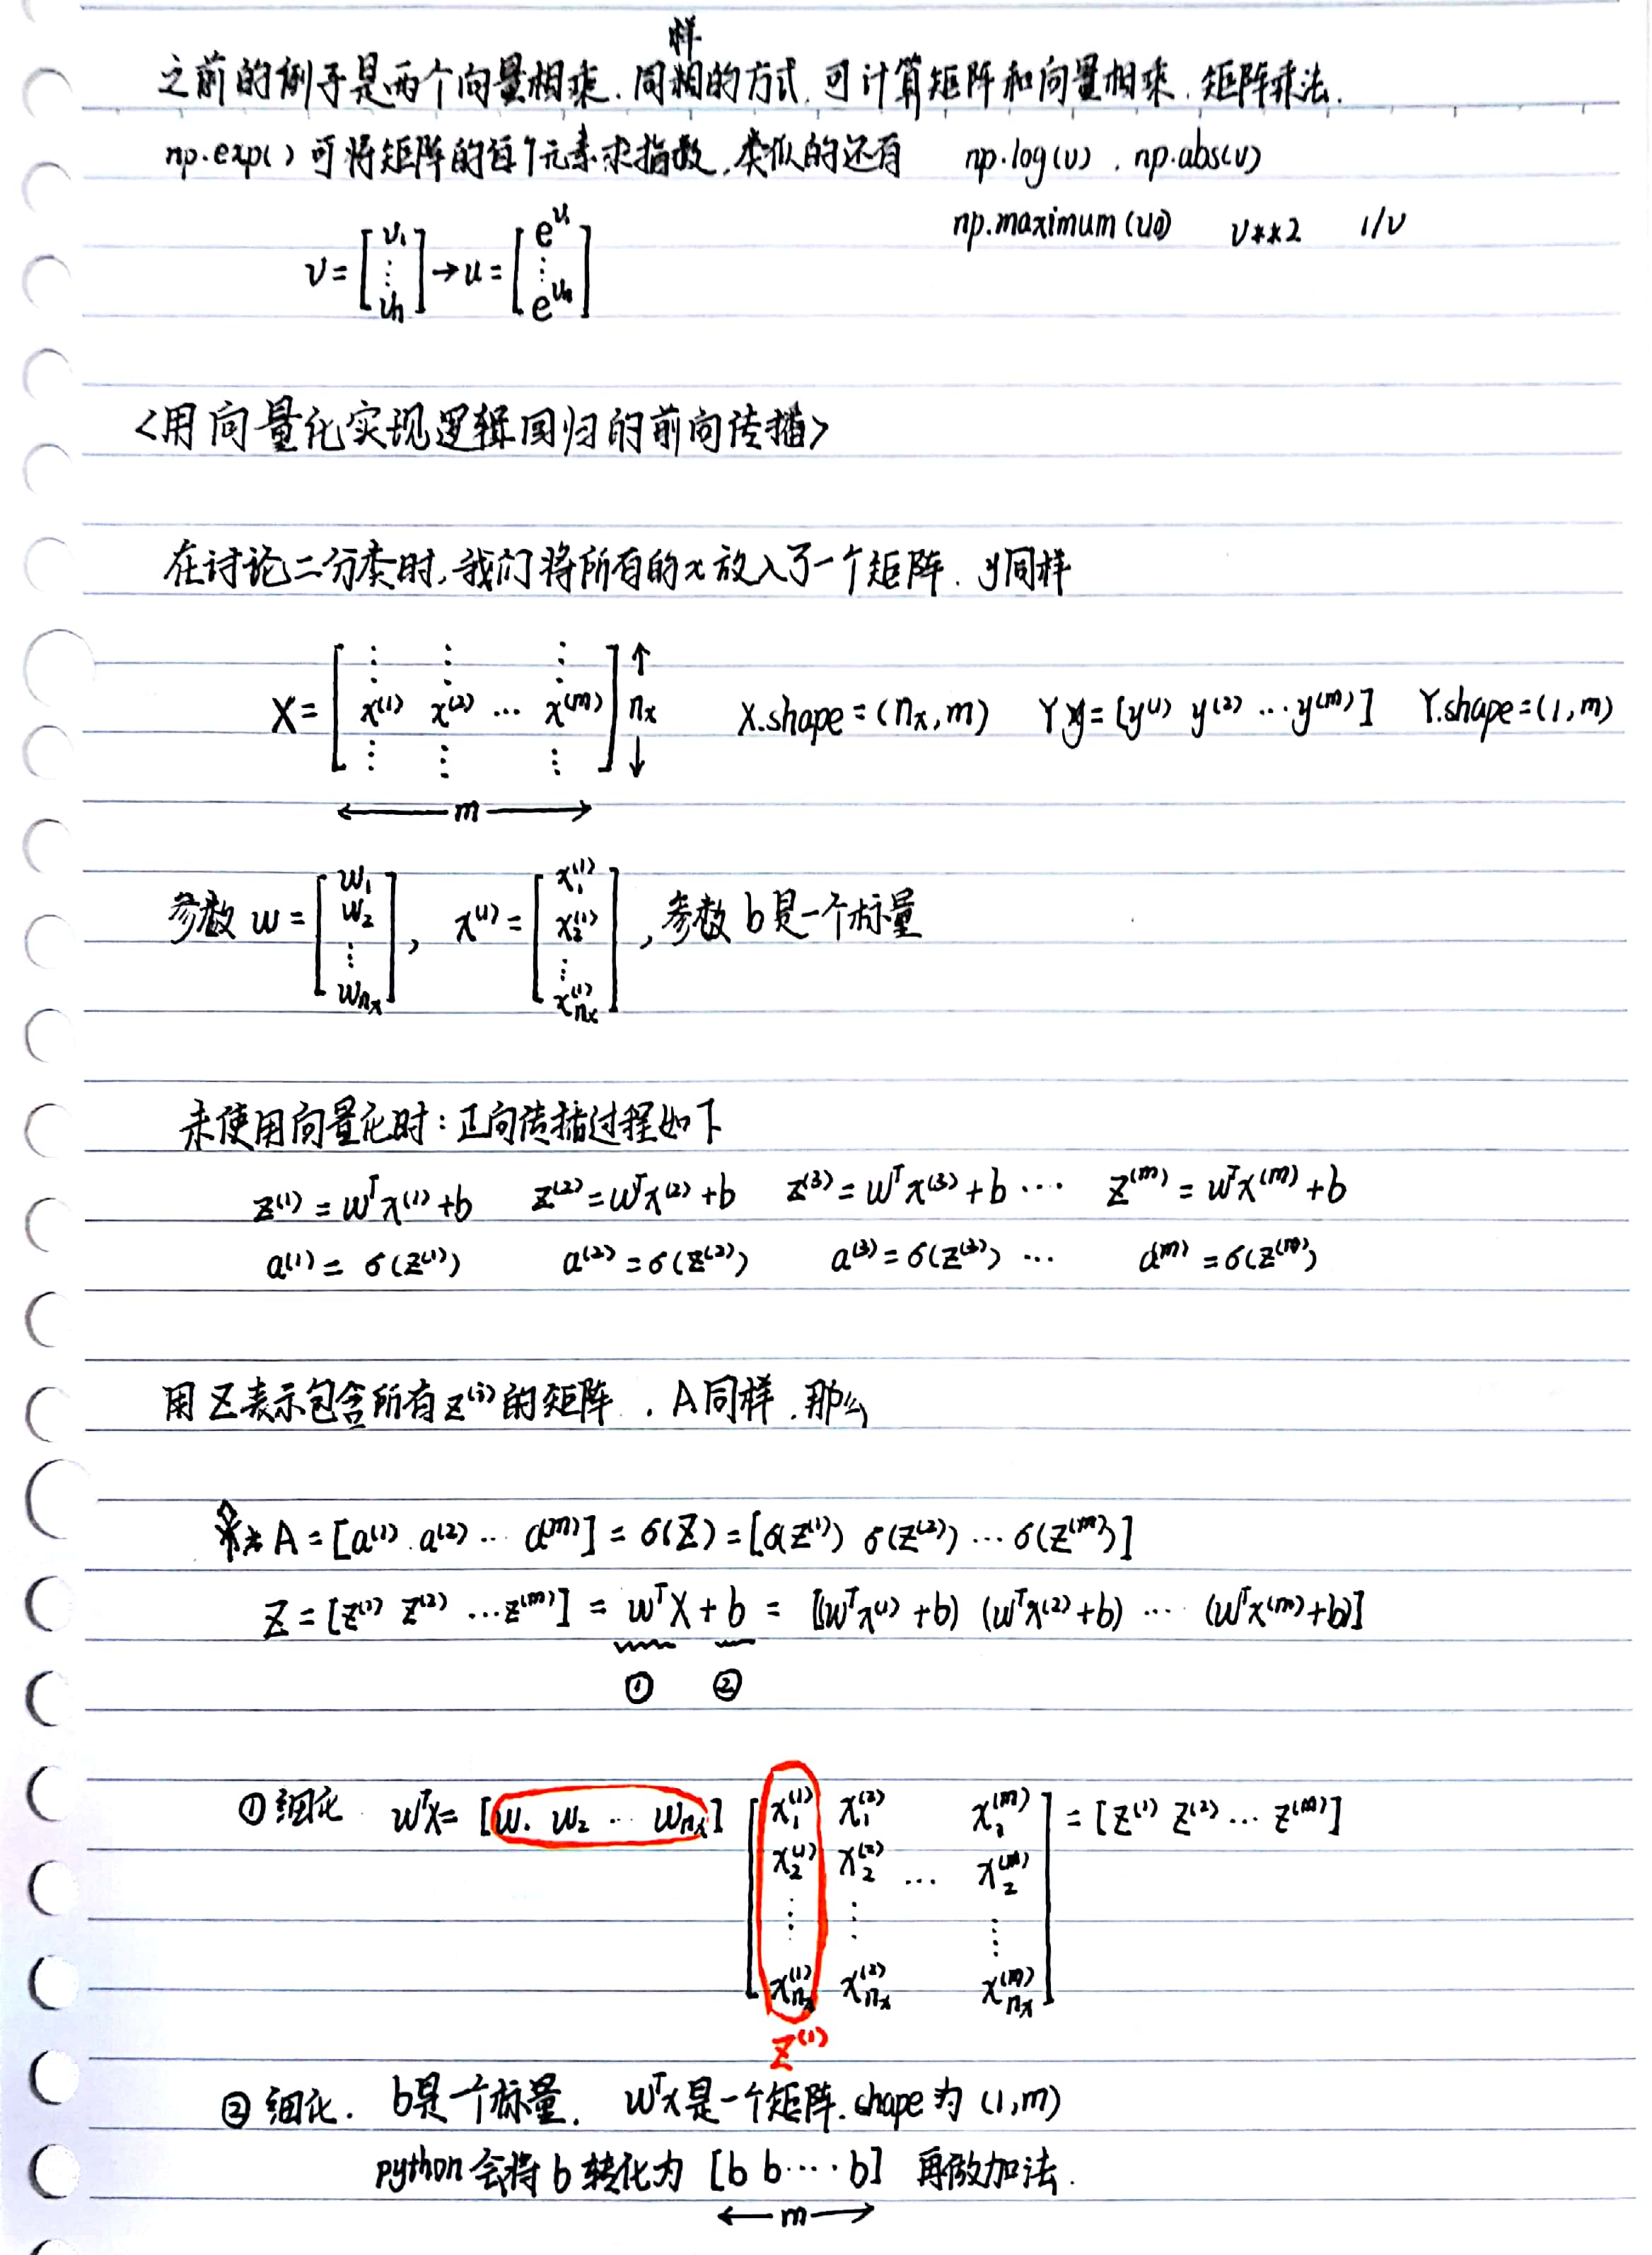 之前的例子是两个向量相乘. 同样的方式, 可计算矩阵和向量相乘, 矩阵乘法.
np.exp() 可将矩阵的每个元素求指数, 类似的还有 np.log(v) , np.abs(v)
np.maximum(v,0) v**2 1/v
v = [v₁ ⋮ vₙ] → u = [e^v₁ ⋮ e^vₙ]
<用向量化实现逻辑回归的前向传播>
在讨论二分类时, 我们将所有的x放入了一个矩阵. y同样
X = [x⁽¹⁾ x⁽²⁾ ... x⁽ᵐ⁾] ↑ nₓ ↓ X.shape = (nₓ, m) Y = [y⁽¹⁾ y⁽²⁾ ... y⁽ᵐ⁾] Y.shape = (1, m)
← m →
参数 w = [w₁ w₂ ⋮ w_nₓ] , x⁽¹⁾ = [x₁⁽¹⁾ x₂⁽¹⁾ ⋮ x_nₓ⁽¹⁾] , 参数 b是一个标量
未使用向量化时: 正向传播过程如下
z⁽¹⁾ = wᵀx⁽¹⁾ + b z⁽²⁾ = wᵀx⁽²⁾ + b z⁽³⁾ = wᵀx⁽³⁾ + b ... z⁽ᵐ⁾ = wᵀx⁽ᵐ⁾ + b
a⁽¹⁾ = σ(z⁽¹⁾) a⁽²⁾ = σ(z⁽²⁾) a⁽³⁾ = σ(z⁽³⁾) ... a⁽ᵐ⁾ = σ(z⁽ᵐ⁾)
用 Z表示包含所有 z⁽ⁱ⁾ 的矩阵 . A同样. 那么
A = [a⁽¹⁾ a⁽²⁾ ... a⁽ᵐ⁾] = σ(Z) = [σ(z⁽¹⁾) σ(z⁽²⁾) ... σ(z⁽ᵐ⁾)]
Z = [z⁽¹⁾ z⁽²⁾ ... z⁽ᵐ⁾] = wᵀX + b = [(wᵀx⁽¹⁾ + b) (wᵀx⁽²⁾ + b) ... (wᵀx⁽ᵐ⁾ + b)]
① ②
①细化 wᵀX = [w₁ w₂ ... w_nₓ] [x₁⁽¹⁾ x₁⁽²⁾ x₁⁽ᵐ⁾ = [z⁽¹⁾ z⁽²⁾ ... z⁽ᵐ⁾]
x₂⁽¹⁾ x₂⁽²⁾ ... x₂⁽ᵐ⁾
⋮ ⋮ ⋮
x_nₓ⁽¹⁾ x_nₓ⁽²⁾ x_nₓ⁽ᵐ⁾]
z⁽¹⁾
②细化. b是一个标量. wᵀx是一个矩阵. shape为 (1,m)
python 会将 b 转化为 [b b ... b] 再做加法.
← m →